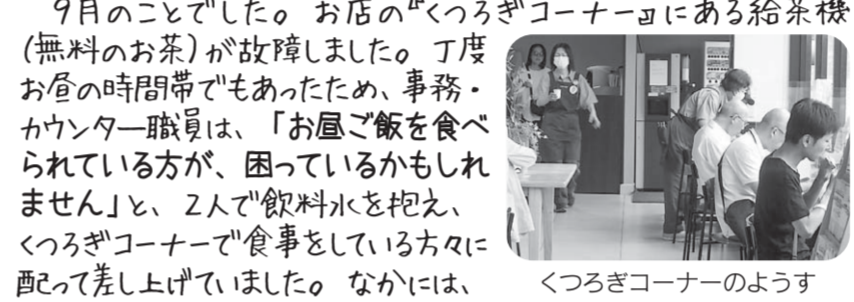 9月のことでした。お店の『くつろぎコーナー』にある給茶機
(無料のお茶)が故障しました。丁度
お昼の時間帯でもあったため、事務・
カウンター職員は、「お昼ご飯を食べ
られている方が、困っているかもしれ
ません」と、2人で飲料水を抱え、
くつろぎコーナーで食事をしている方々に
配って差し上げていました。なかには、
くつろぎコーナーのようす